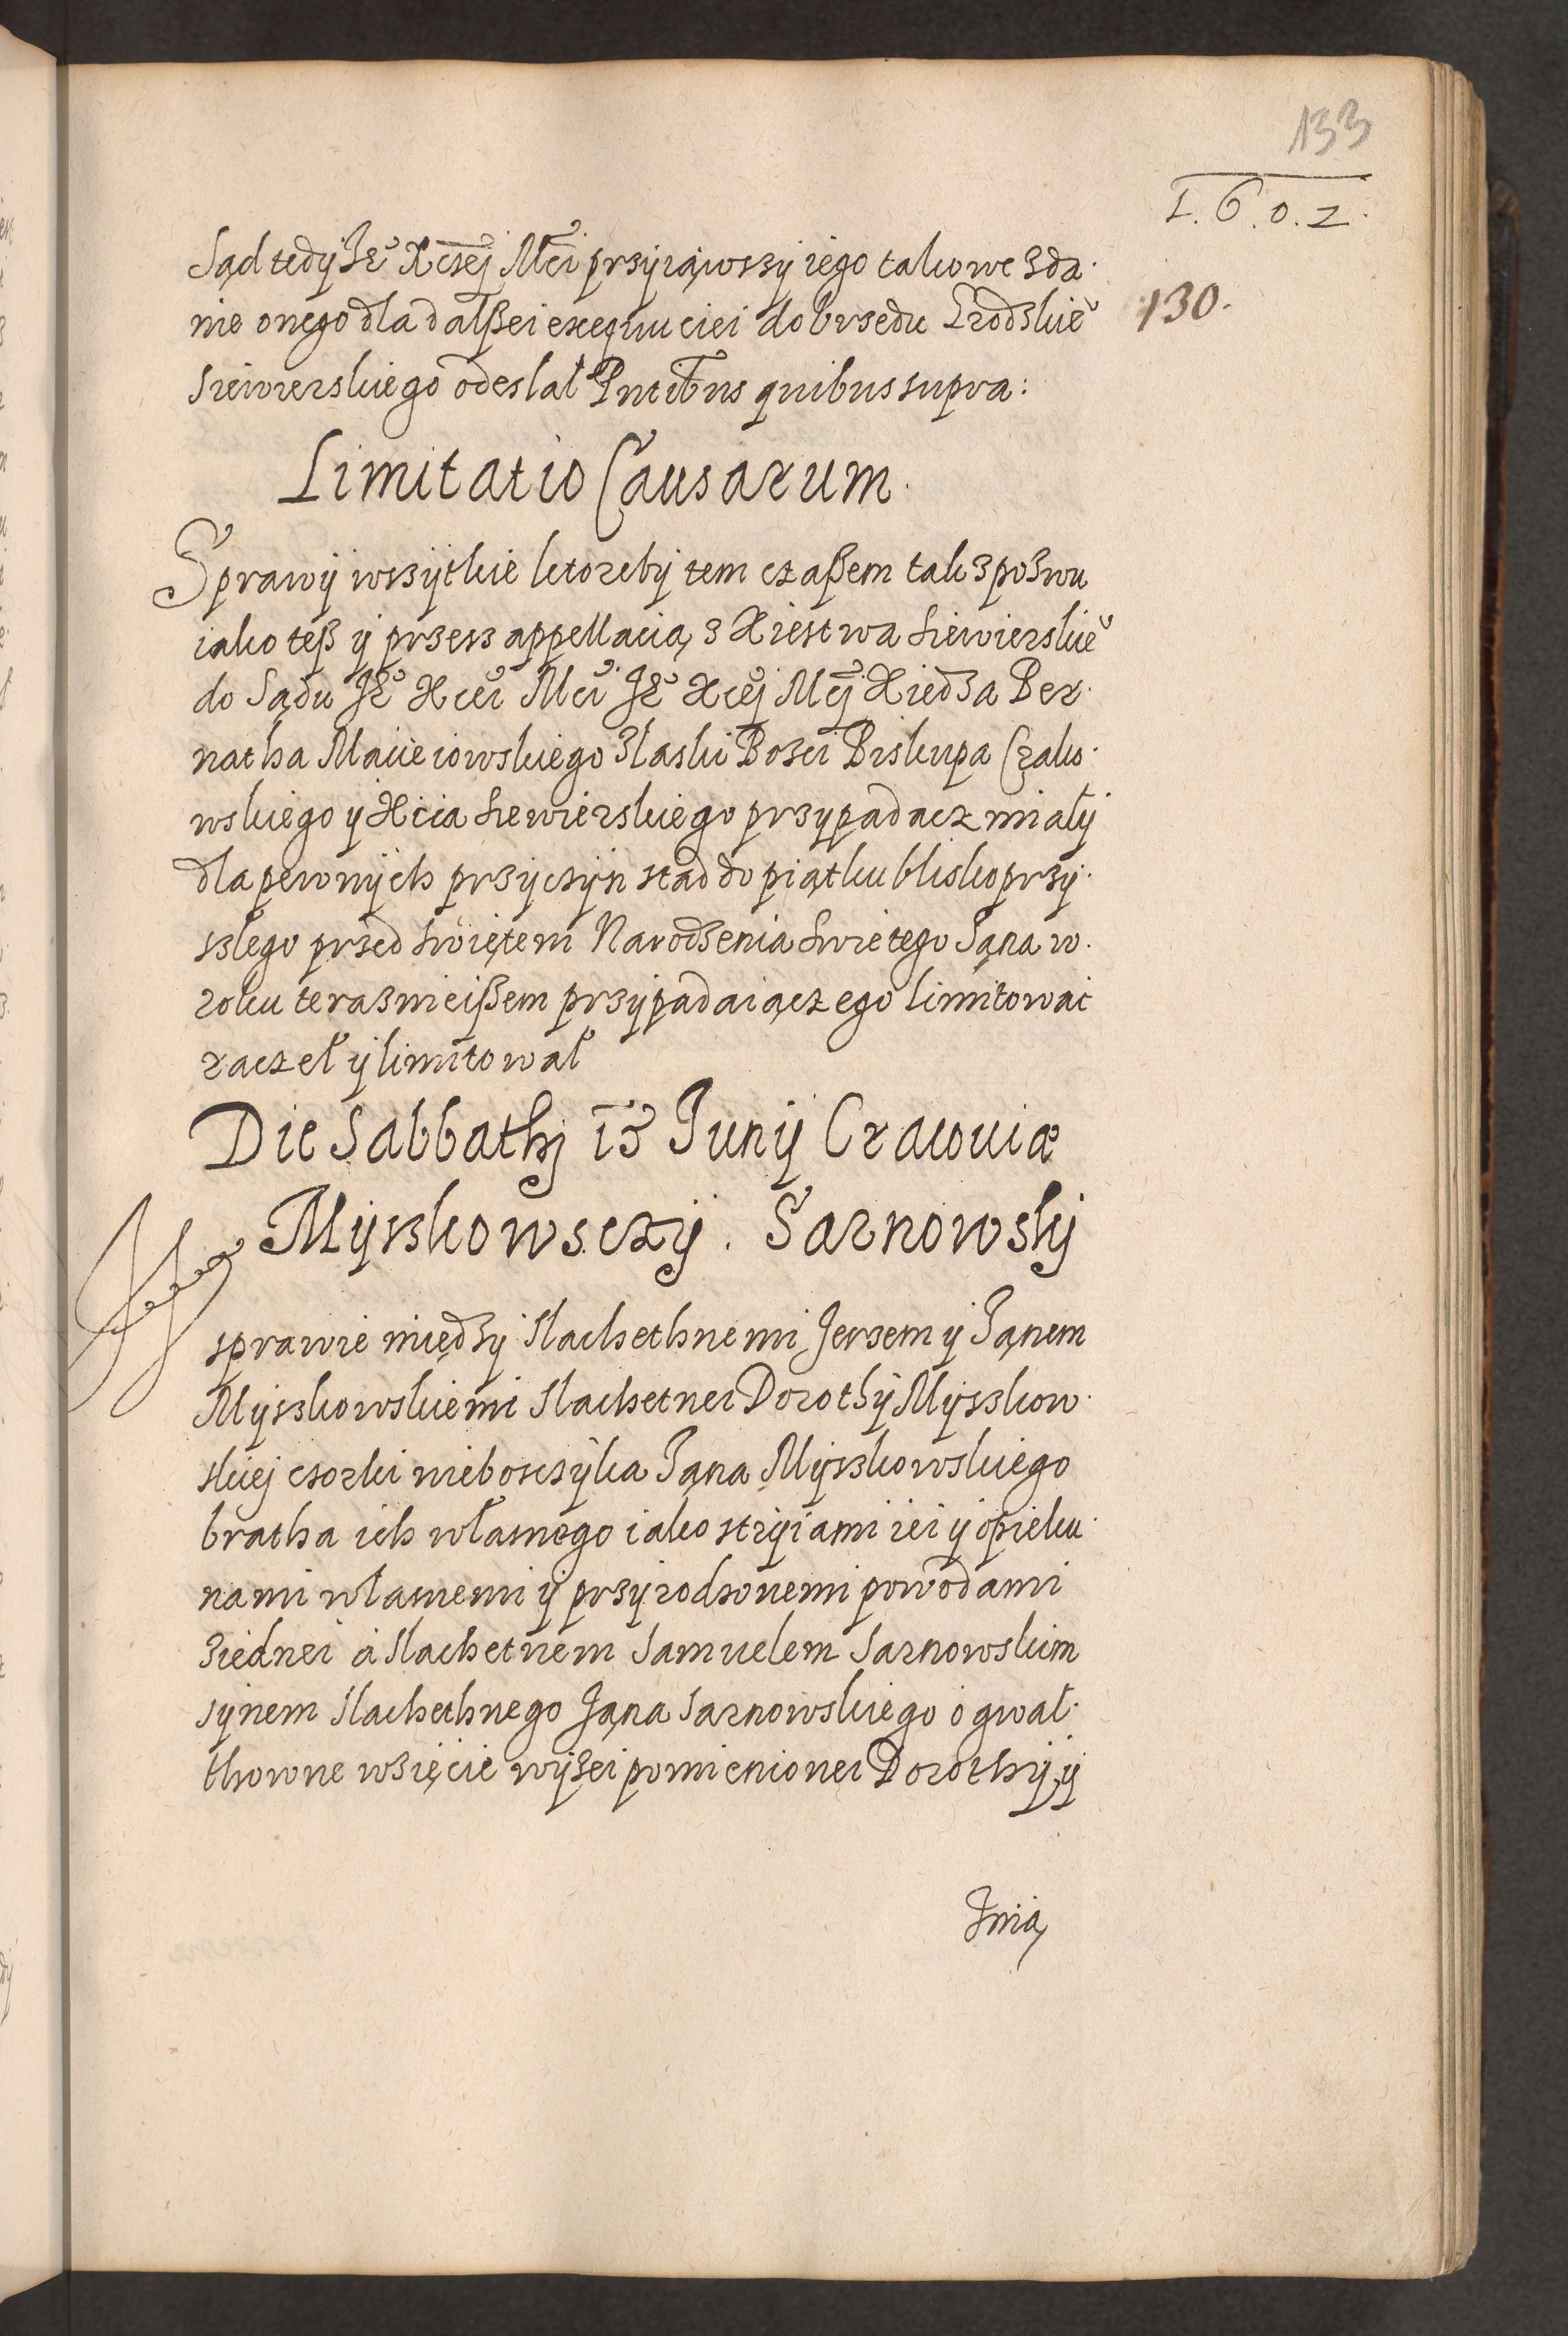 133
1.6.0.2.
Sąd tedÿ Je° Xczej Mci przyiąwszy iego takowe zda·
130.
nie onego dla dalßei exequuciei do Vrzedu Grodskie°
Siewierskiego odesłał Pntibus quibus supra:
Limitatio Causarum.
Sprawÿ wszÿtkie ktoreby tem czaßem tak z pozwu
iako teß ÿ przesz appellacią z Xiestwa Siewierskie°
do Sądu Je° Xcei Mci Je° Xcej Mcj Xiedza Ber·
natha Macieiowskiego z laski Bozei Biskupa Crako·
wskiego y Xcia Siewierskiego przypadacz miały
dla pewnÿch przÿczÿn stad do piątku blisko przy·
szłego przed Swiętem Narodzenia Swietego Jana w·
roku terazniejßem przÿpadaiączego limitowac
raczeł ÿ limitował
Die Sabbathj 15 Junij Cracouiæ
Mÿszkowsczÿ. Sarnowskj
W sprawie międzÿ Slachethnemi Jerzem ÿ Janem
Mÿszkowskiemi Slachetnei Dorothÿ Mÿszkow·
skiej czorki nieboszczÿka Jana Mÿszkowskiego
bratha ich własnego iako strÿiami iei ÿ opieku·
nami własnemi ÿ przÿrodzonemi powodami
z iednei a Slachetnem Samuelem Sarnowskim
sÿnem Slachethnego Jana Sarnowskiego o gwał·
thowne wzięcie wÿzei pomienionei Dorothÿ ÿ
Jmią